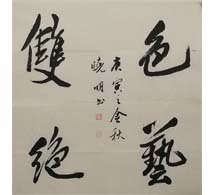 色藝
雙絶
庚寅之金秋
曉明书